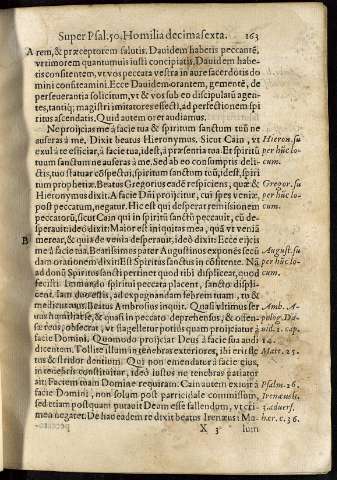 Super Psal. 50. Homilia decimasexta. 163
rem, & præceptorem salutis. Dauidem habetis peccantē,
vt timorem quantumuis iusti concipiatis. Dauidem habe-
tis confitentem, vt vos peccata vestra in aure sacerdotis do
mini confiteamini. Ecce Dauidem orantem, gementē, de
perseuerantia solicitum, vt & vos sub eo discipuli agen-
tes, tanti magistri imitatores effecti, ad perfectionem spi
ritus ascendatis. Quid autem oret audiamus.
Ne proijcias me à facie tua & spiritum sanctum tuū ne
auferas à me. Dixit beatus Hieronymus. Sicut Cain, vt Hieron. su
exul à te efficiar, à facie tua, idest, à præsentia tua. Et spiritū per hūc lo-
tuum sanctum ne auferas à me. Sed ab eo consumptis deli- cum.
ctis, tuo statuar cōspectui, spiritum sanctum tuū, idest, spiri
tum prophetiæ. Beatus Gregorius eadē respiciens, quæ & Gregor. su
Hieronymus dixit. A facie Dñi proijcitur, cui spes veniæ, per hūc lo-
post peccatum, negatur. Hic est qui desperat remissionem cum.
peccatorū, sicut Cain qui in spiritū sanctū peccauit, cū de-
sperauit: ideo dixit: Maior est iniquitas mea, quā vt veniā
B merear, & quia de venia desperauit, ideo dixit: Ecce eijcis
me à facie tua. Beatissimus pater Augustinus exponēs secū August. su
dam orationem dixit: Est Spiritus sanctus in cōfitente. Nā per hūc lo-
ad donū Spiritus sancti pertinet quod tibi displicet, quod cum.
fecisti. Immundo spiritui peccata placent, sancto displi-
cent. Iam duo estis, ad expugnandam febrem tuam, tu &
medicus tuus. Beatus Ambrosius inquit. Quasi vltimus ser Amb. A-
uus humiliatæ, & quasi in peccato deprehensus, & offen- polog. Da-
sæ reus, obsecrat, vt flagelletur potius quam proijciatur à uid. 2. cap.
facie Domini. Quomodo proijciat Deus à facie sua audi 14.
dicentem. Tollite illum in tenebras exteriores, ibi erit fle Matt. 25.
tus & stridor dentium. Qui non emendatur à facie eius,
in tenebris constituitur, ideo iustus ne tenebras patiatur
ait: Faciem tuam Domine requiram. Cain autem exiuit à Psalm. 26.
facie Domini, non solum post parricidale commissum, Irenæus li.
sed etiam postquam putauit Deum esse fallendum, vt cri- 3. aduers.
men negaret. De hac eadem re dixit beatus Irenæus: Ma- her. c. 36.
X 3 lum